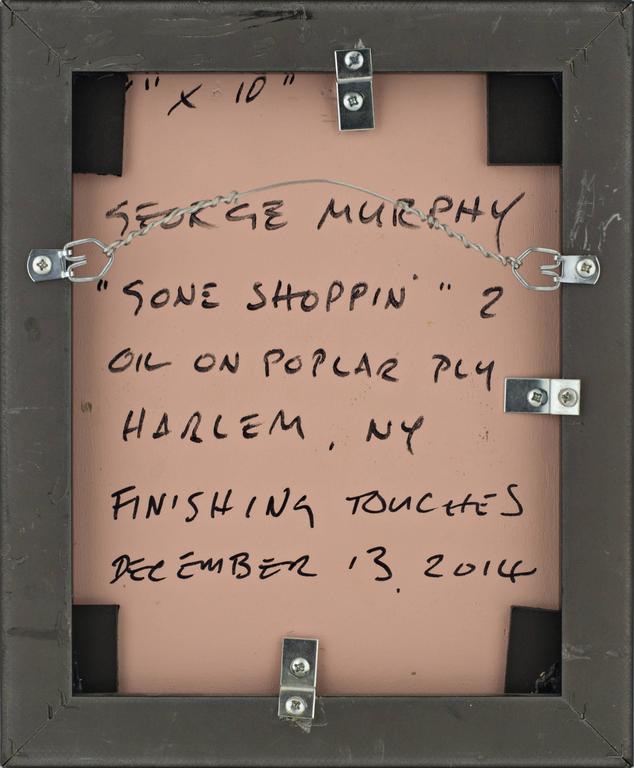 " x 10"
GEORGE MURPHY
"GONE SHOPPIN'" 2
OIL ON POPLAR PLY
HARLEM, NY
FINISHING TOUCHES
DECEMBER 13, 2014